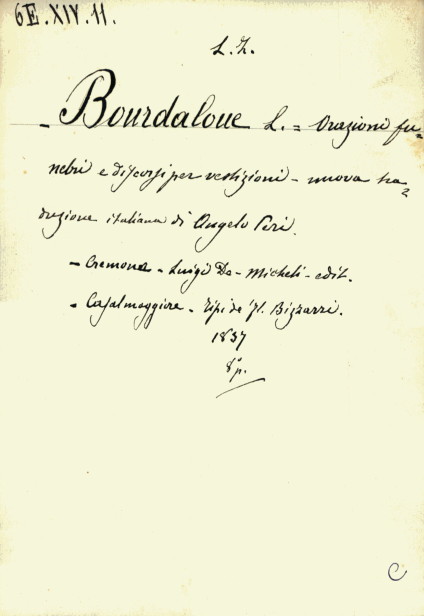 6E.XIV.11.
L. Z.
- Bourdaloue L. = Orazioni fu=
nebri e discorsi per vestizioni - nuova tra=
duzione italiana di Angelo Peri.
- Cremona - Luigi De-Micheli - edit.
- Casalmaggiore - Tipi de' fl. Bizzarri.
1837
8° p.
C